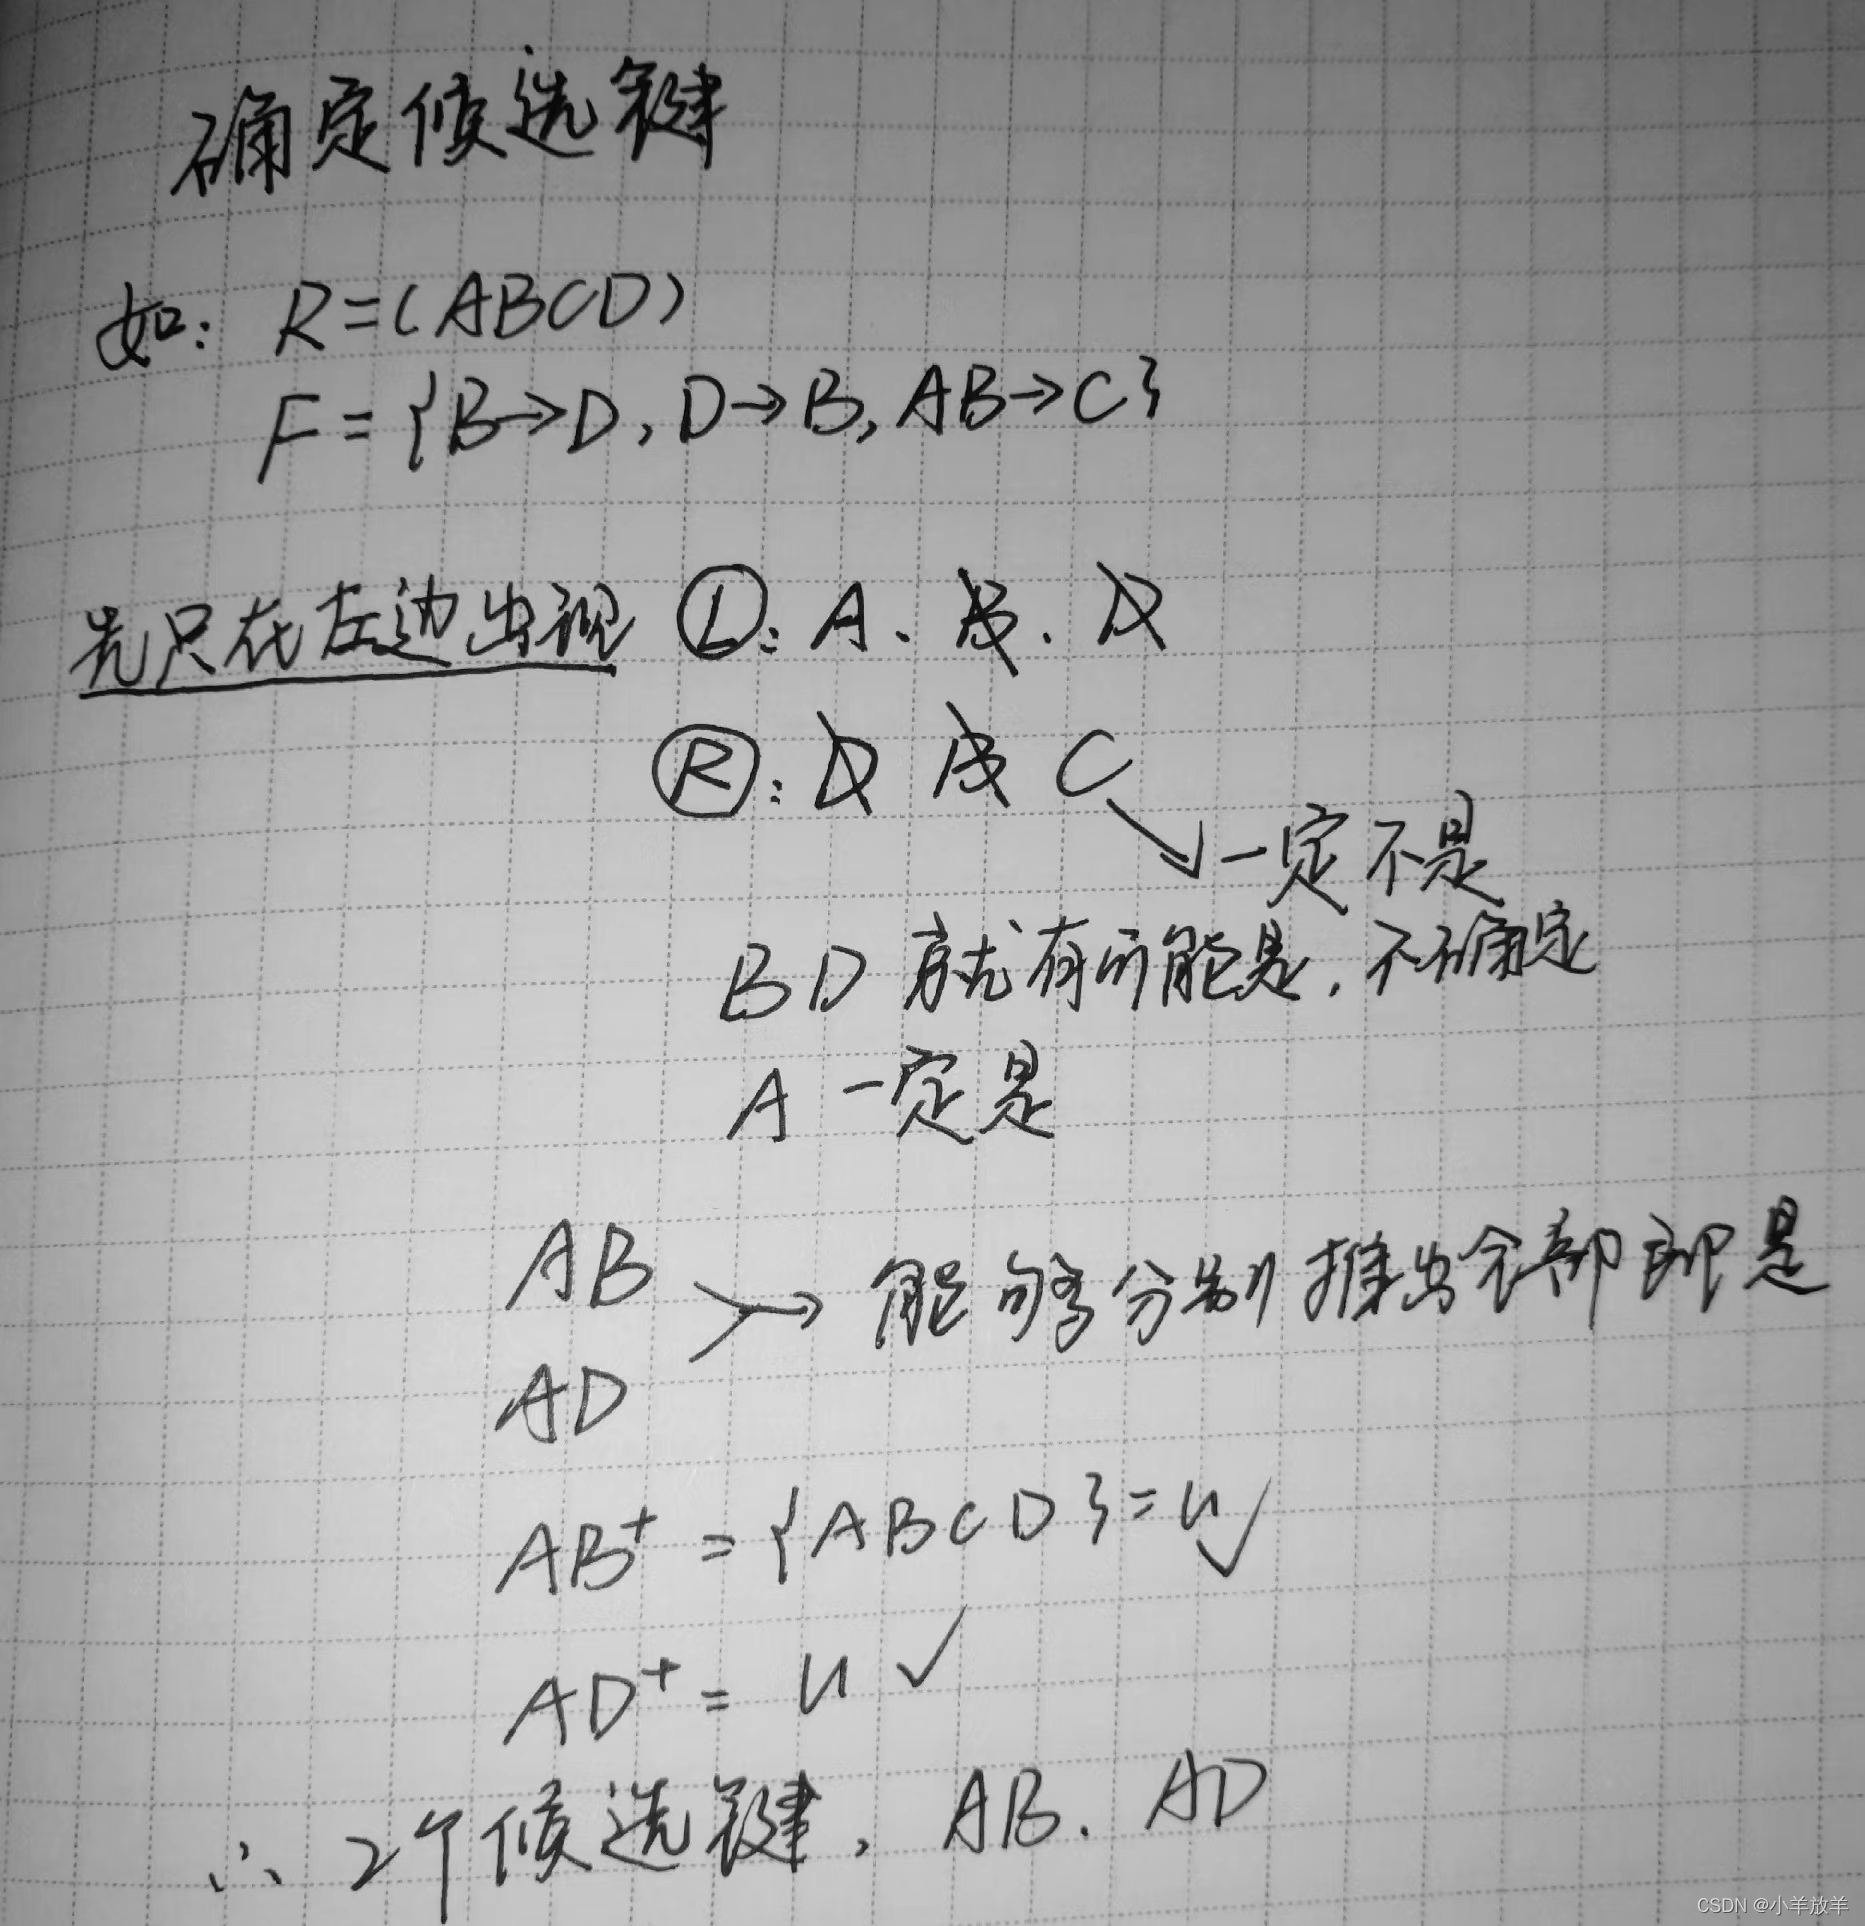 确定候选键
如: R=(ABCD)
F={B→D, D→B, AB→C}
先只在左边出现 Ⓛ: A、B、D
Ⓡ: D B C
一定不是
BD 就有可能是, 不确定
A 一定是
AB
能够分别推出全部即是
AD
AB⁺ = {ABCD} = U ✓
AD⁺ = U ✓
∴ 2个候选键, AB、AD
CSDN @小羊放羊